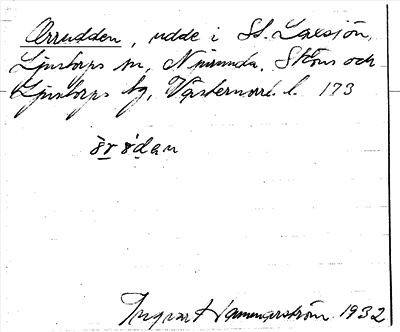 Örrudden, udde i St. Laxsjön,
Ljustorps sn, Njurunda, Sköns och
Ljustorps tg, Västernorrl. l. 173
Ingvar Hammarström 1932